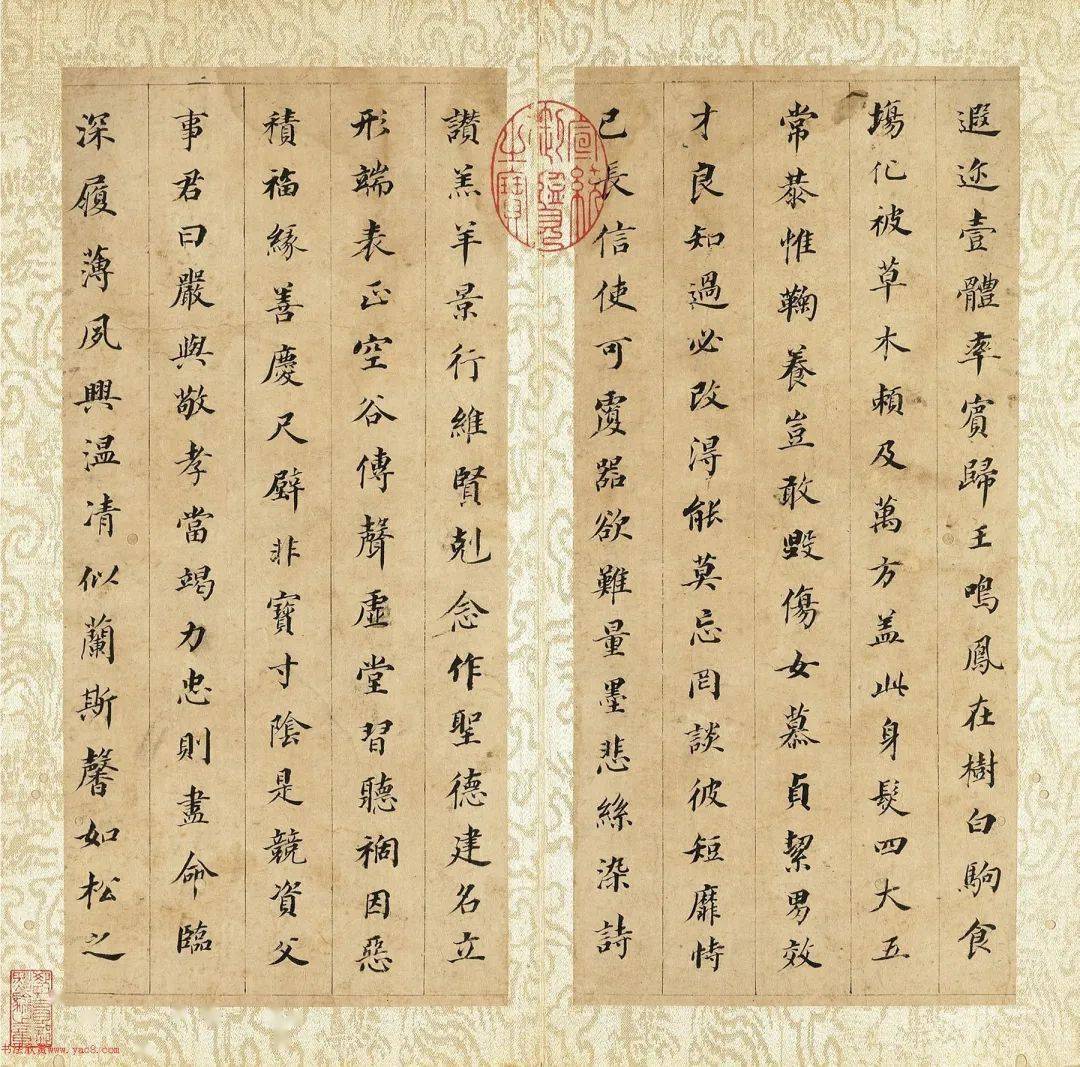 遐迩壹體率賓歸王鳴鳳在樹白駒食
塲化被草木頼及萬方盖此身髮四大五
常恭惟鞠養豈敢毀傷女慕貞絜男效
才良知過必改得能莫忘罔談彼短靡恃
已長信使可覆器欲難量墨悲絲染詩
讚羔羊景行維賢剋念作聖德建名立
形端表正空谷傳聲虛堂習聽禍因惡
積福緣善慶尺璧非寶寸陰是競資父
事君曰嚴與敬孝當竭力忠則盡命臨
深履薄夙興温凊似蘭斯馨如松之
宣統
御覽
之寶
书法欣赏www.yac8.com